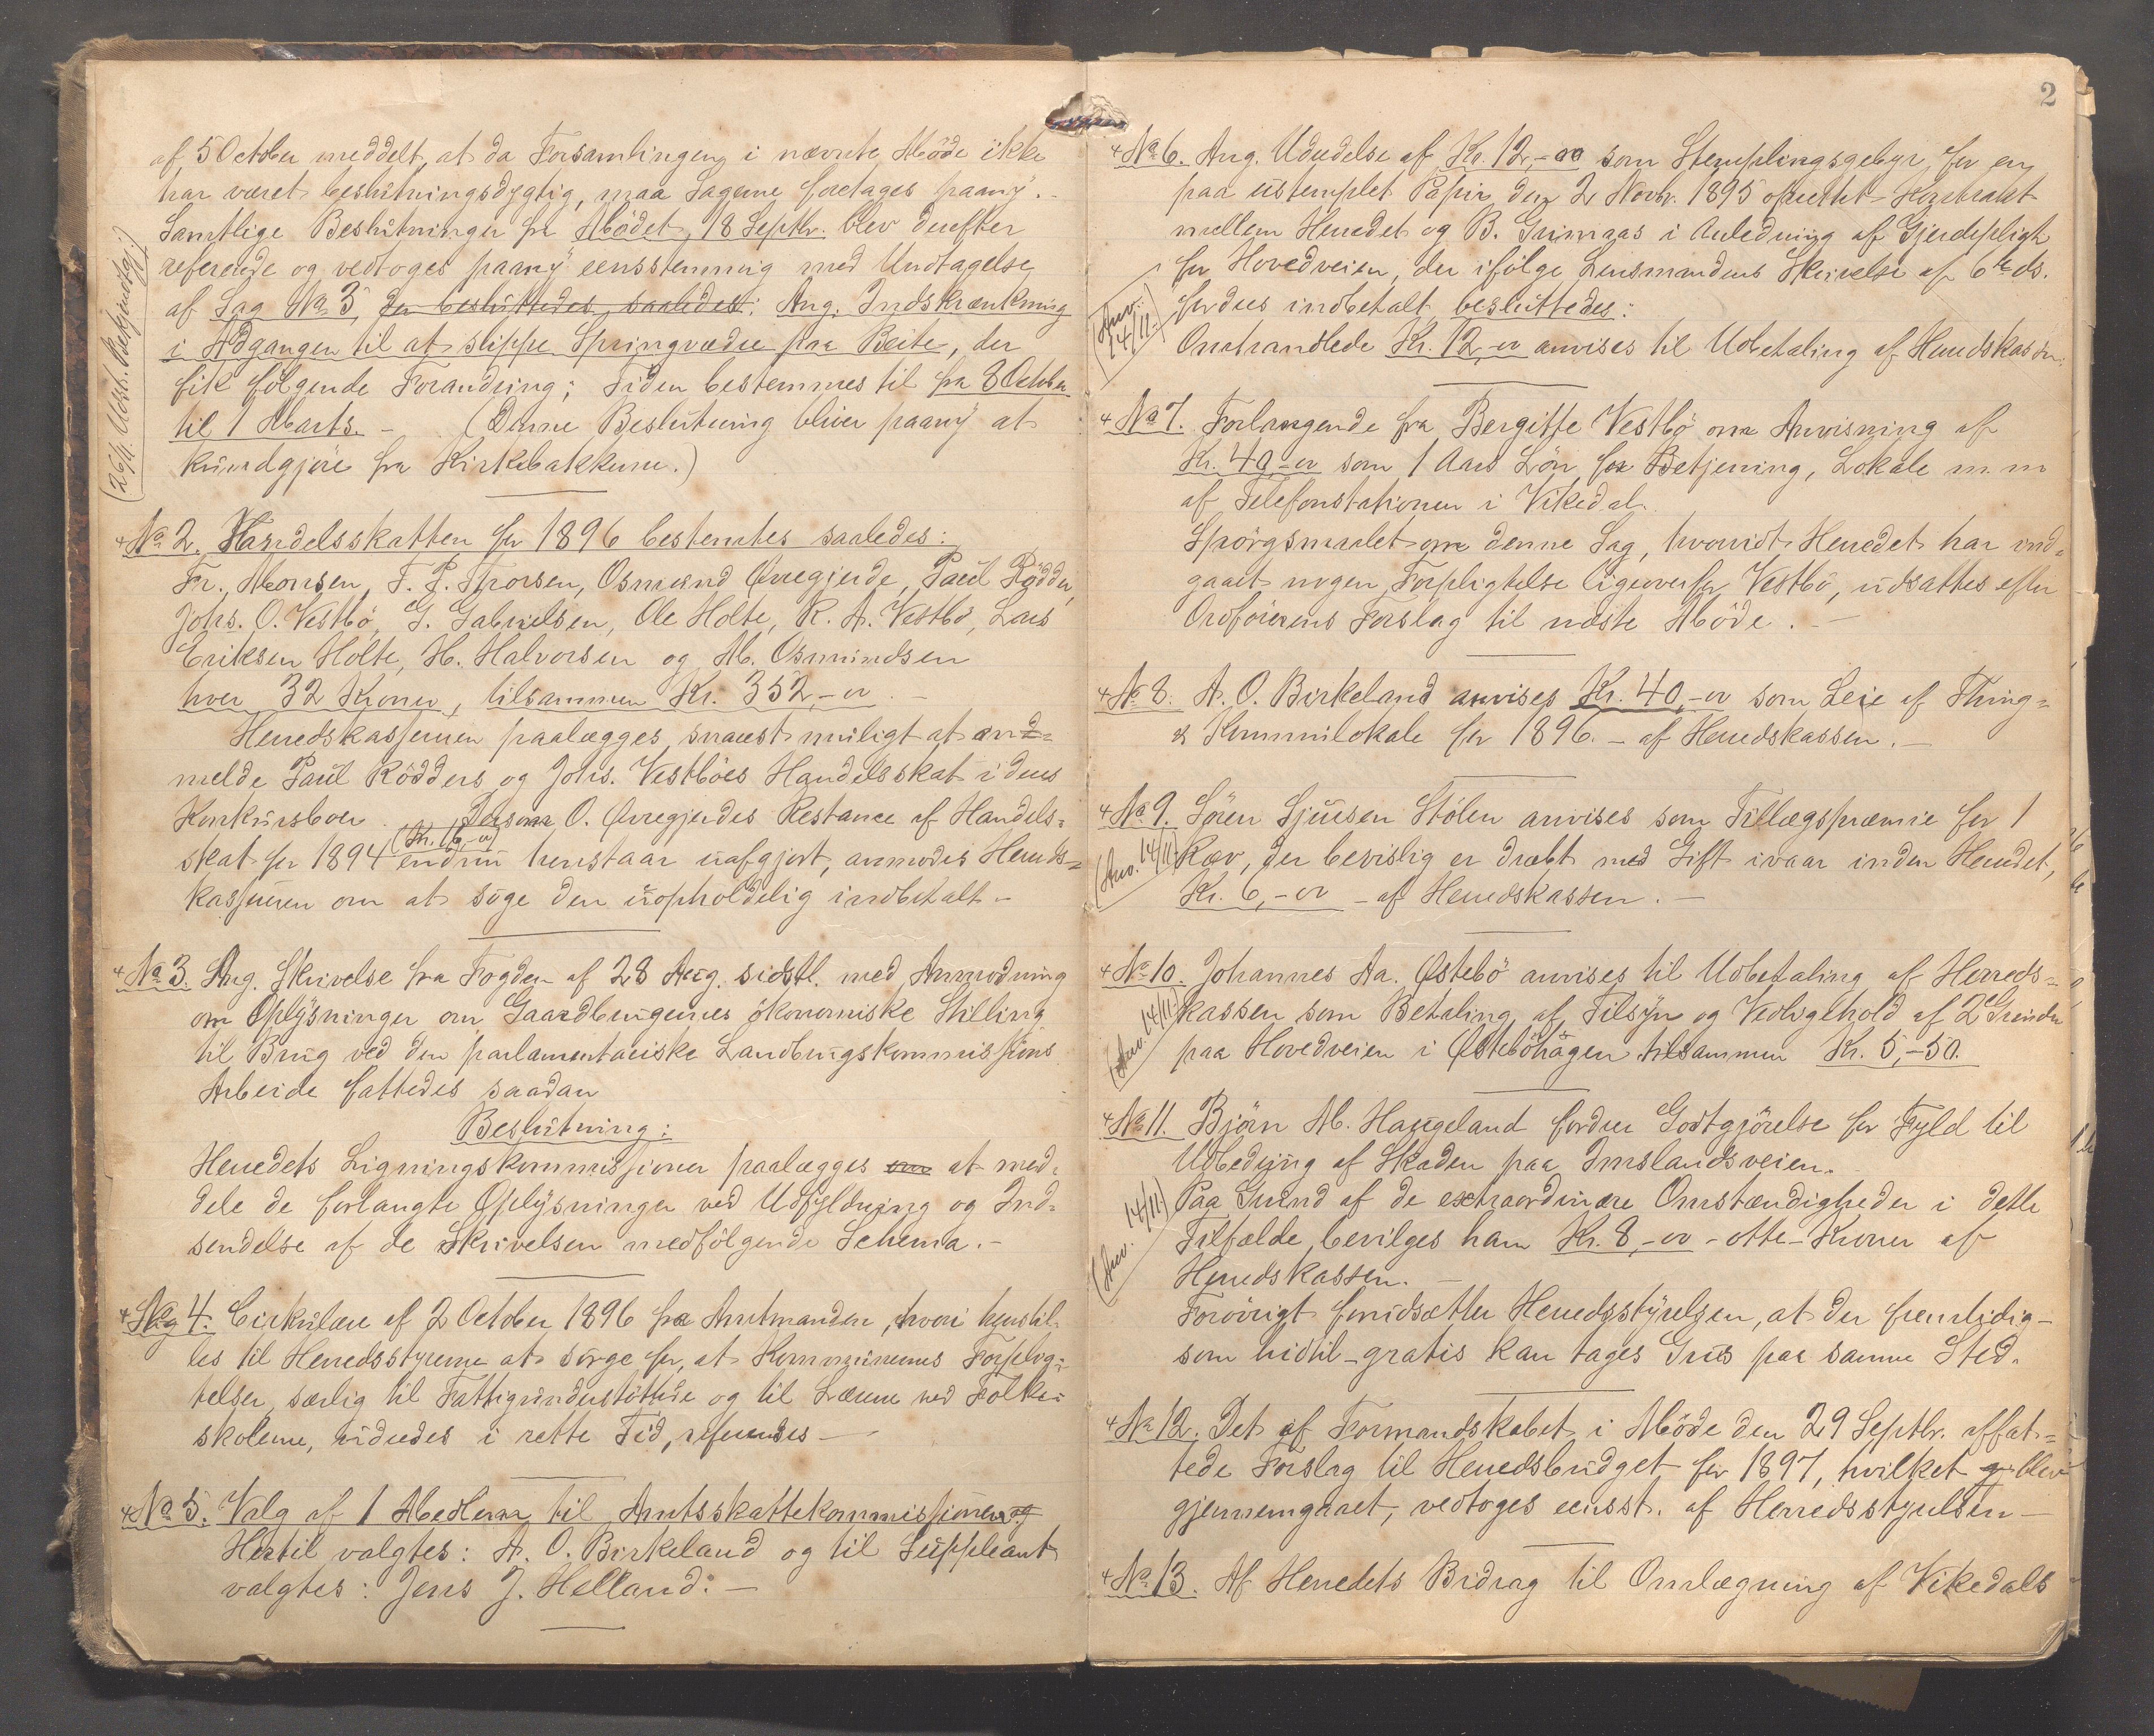 af 5 October meddelt, at da Forsamlingen i nævnte Möde ikke
har været beslutningsdygtig, maa Sagerne foretages paany.-
Samtlige Beslutninger fra Mödet 18 Septbr. blev derefter
refererede og vedtoges paany eensstemmig med Undtagelse
af Sag No 3, der besluttedes saaledes: Ang. Indskrænkning
i Adgangen til at slippe Springvædre paa Beite, der
fik fölgende Forandring; Tiden bestemmes til fra 8 October
til 1 Marts. - (Denne Beslutning bliver paany at
kundgjöre fra Kirkebakkerne.)
(26/11. Udst. Bekjendtgj.)
No 2. Handelsskatten for 1896 bestemtes saaledes:
Fr. Monsen, T. P. Thorsen, Osmund Øvregjerde, Paul Rödder,
Johs. O. Vestbö, G. Gabrielsen, Ole Holte, R. A. Vestbö, Lars
Eriksen Holte, H. Halvorsen og M. Osmundsen
hver 32 Kroner, tilsammen Kr. 352,-oo. -
Herredskassereren paalægges snarest muligt at an=
melde Paul Rödders og Johs. Vestböes Handelsskat i deres
Konkursboer. Dersom O. Øvregjerdes Restance af Handels=
skat for 1894 (Kr. 16,-oo) endnu henstaar uafgjort, anmodes Herreds=
kassereren om at söge den uopholdelig indbetalt.-
No 3. Ang. Skrivelse fra Fogden af 28 Aug. sidstl. med Anmodning
om Oplysninger om Gaardbrugernes ökonomiske Stilling
til Brug ved den parlamentariske Landbrugskommissions
Arbeide fattedes saadan
Beslutning:
Herredets Ligningskommissioner paalægges om at med=
dele de forlangte Oplysninger ved Udfyldning og Ind=
sendelse af de Skrivelsen medfölgende Schema.-
Sag 4. Cirkulære af 2 October 1896 fra Amtmanden, hvori henstil=
les til Herredsstyrerne at sörge for, at Kommunernes Forplig=
telser, særlig til Fattigunderstöttede og til Lærerne ved Folke=
skolerne, udredes i rette Tid, refereredes -
No 5. Valg af 1 Medlem til Amtsskattekommissionen og
Hertil valgtes: A. O. Birkeland og til Suppleant
valgtes: Jens J. Helland. -
2
No 6. Ang. Udredelse af Kr. 12,-oo som Stemplingsgebyr for en
paa ustemplet Papir den 2 Novbr. 1895 oprettet Kontrakt
mellem Herredet og B. Grimaas i Anledning af Gjerdepligt
for Hovedveien, der ifölge Lensmandens Skrivelse af 6te ds.
fordres indbetalt, besluttedes:
Omhandlede Kr. 12,-oo anvises til Udbetaling af Herredskassen.
(Anv. 14/11.)
No 7. Forlangende fra Bergitte Vestbö om Anvisning af
Kr. 40,-oo som 1 Aars Lön for Betjening, Lokale m.m
af Telefonstationen i Vikedal.
Spörgsmaalet om denne Sag, hvorvidt Herredet har ind=
gaaet nogen Forpligtelse ligeoverfor Vestbö, udsattes efter
Ordförerens Forslag til næste Möde. -
No 8. A. O. Birkeland anvises Kr. 40,-oo som Leie af Thing=
& Kommunelokale for 1896. - af Herredskassen. -
No 9. Sören Sjursen Stölen anvises som Tillægspræmie for 1
Ræv, der bevislig er dræbt med Gift ivaar inden Herredet,
Kr. 6,-oo - af Herredskassen. -
(Anv. 14/11.)
No 10. Johannes Aa. Östebö anvises til Udbetaling af Herreds=
kassen som Betaling af Tilsyn og Vedligehold af 2 Grinder
paa Hovedveien i Östeböhagen tilsammen Kr. 5,-50.
(Anv. 14/11.)
No 11. Björn M. Haugeland fordrer Godtgjörelse for Fyld til
Udbedring af Skaden paa Imslandsveien.
Paa Grund af de extraordinære Omstændigheder i dette
Tilfælde, bevilges ham Kr. 8,-oo - otte - Kroner af
Herredskassen. -
(Anv. 14/11)
Forövrigt forudsætter Herredsstyrelsen, at der fremtidig -
som hidtil - gratis kan tages Grus paa samme Sted.
No 12. Det af Formandskabet i Möde den 29 Septbr. affat=
tede Forslag til Herredsbudget for 1897, hvilket blev
gjennemgaaet, vedtoges eensst. af Herredsstyrelsen -
No 13. Af Herredets Bidrag til Omlægning af Vikedals